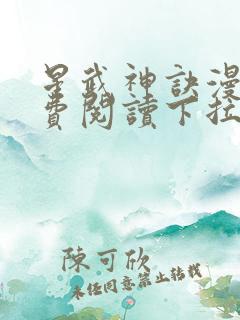 星武神訣漫
費閱讀下拉
陳可欣
未經同意禁止轉載